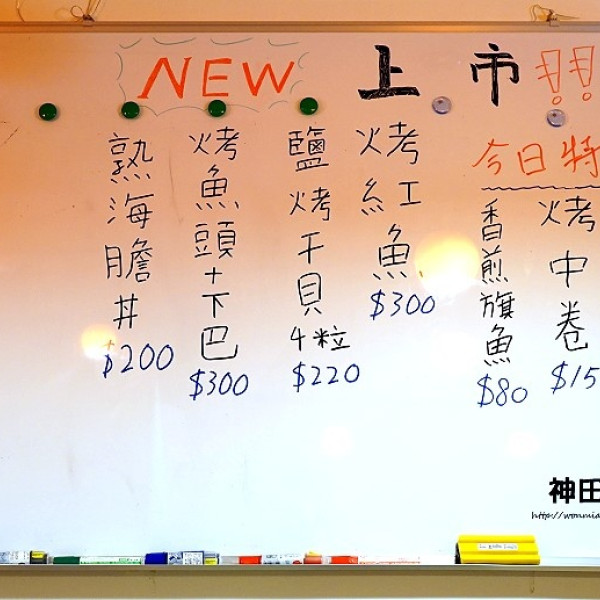 NEW 上市!!
今日特
烤中卷
$15
香煎旗魚
$80
烤紅魚
$300
鹽烤干貝4粒
$220
烤魚頭+下巴
$300
熟海膽丼
$200
神田